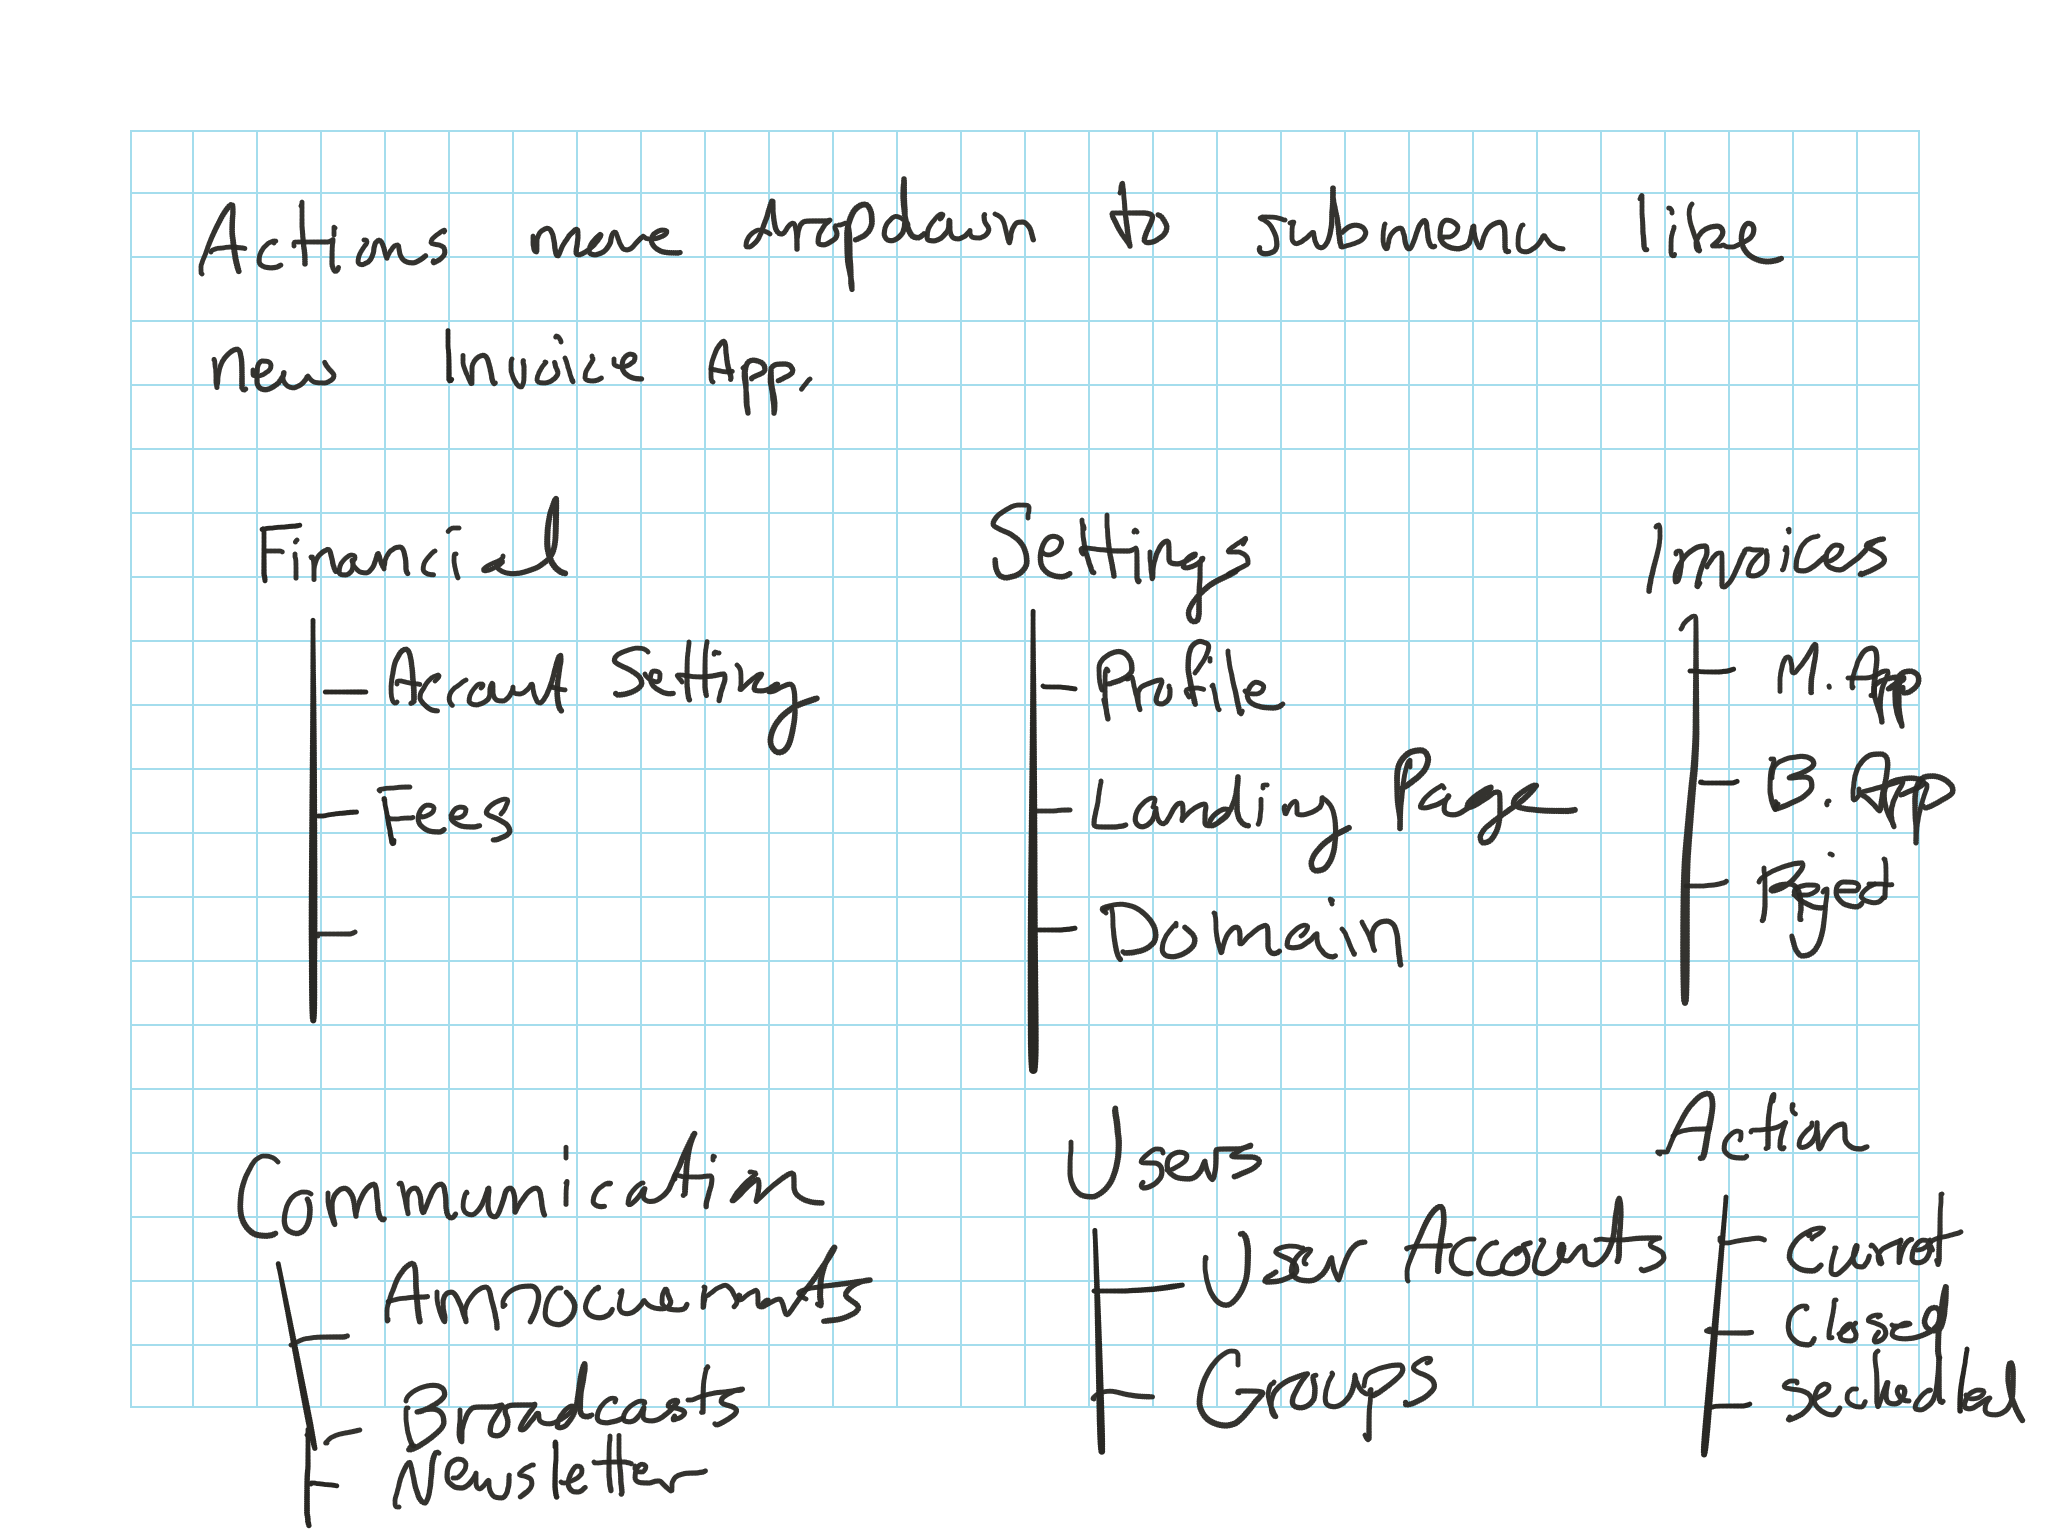 Actions move dropdown to submenu like
new Invoice App.
Financial
- Account Setting
- Fees
-
Settings
- Profile
- Landing Page
- Domain
Invoices
- M. App
- B. App
- Reject
Communication
- Annocuemnts
- Broadcasts
- Newsletter
Users
- User Accounts
- Groups
Action
- Currnt
- Closed
- Sechedled